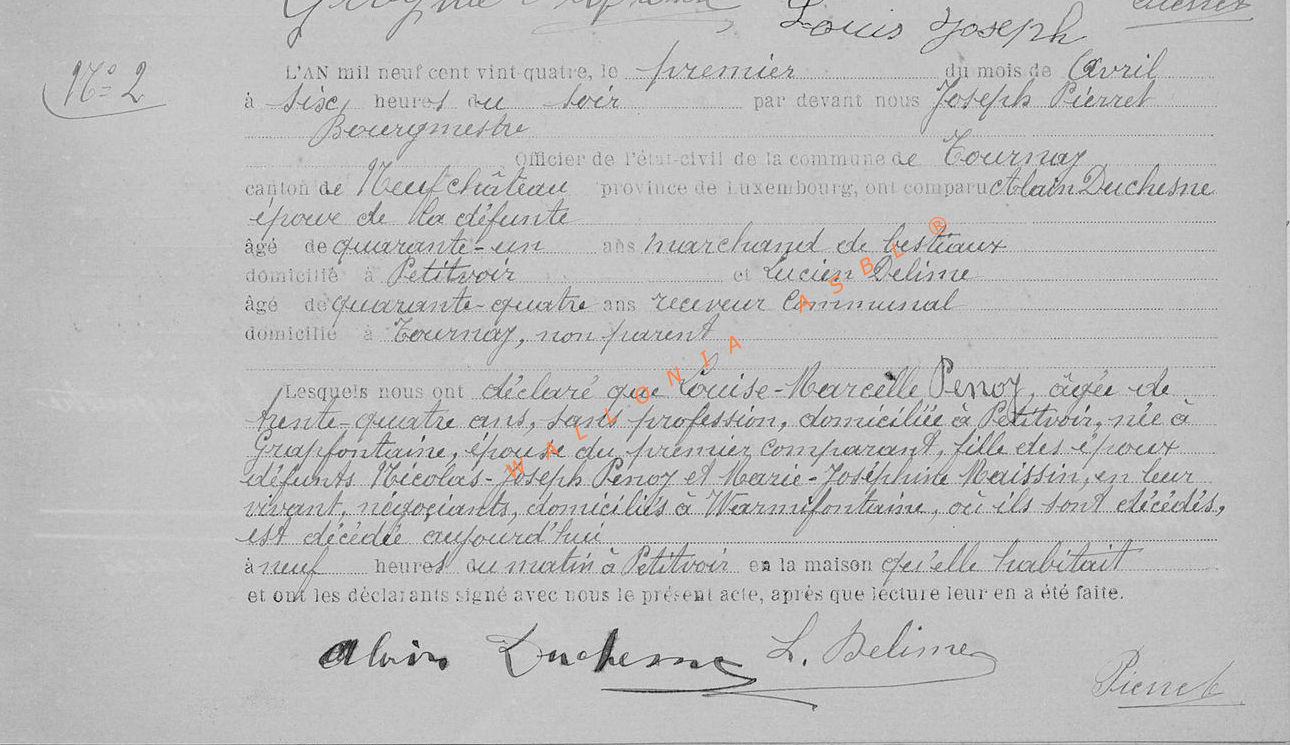 Louis Joseph
N° 2
L'AN mil neuf cent vint-quatre, le premier du mois de Avril
à sise heures du soir par devant nous Joseph Pierret
Bourgmestre
Officier de l'état-civil de la commune de Tournay
canton de Neufchâteau province de Luxembourg, ont comparu Alain Duchesne
époux de la défunte
âgé de quarante-un ans marchand de bestiaux
domicilié à Petitvoir et Lucien Delime
âgé de quarante-quatre ans receveur Communal
domicilié à Tournay, non parent
Lesquels nous ont déclaré que Louise-Marcelle Penoy, âgée de
trente-quatre ans, sans profession, domiciliée à Petitvoir, née à
Grapfontaine, épouse du premier comparant, fille des époux
défunts Nicolas-Joseph Penoy et Marie-Joséphine Maissin, en leur
vivant, négociants, domiciliés à Warmifontaine, où ils sont décédés,
est décédée aujourd'hui
à neuf heures du matin à Petitvoir en la maison qu'elle habitait
et ont les déclarants signé avec nous le présent acte, après que lecture leur en a été faite.
Alain Duchesne L. Delime
Pierret
WALLONIA ASBL ®